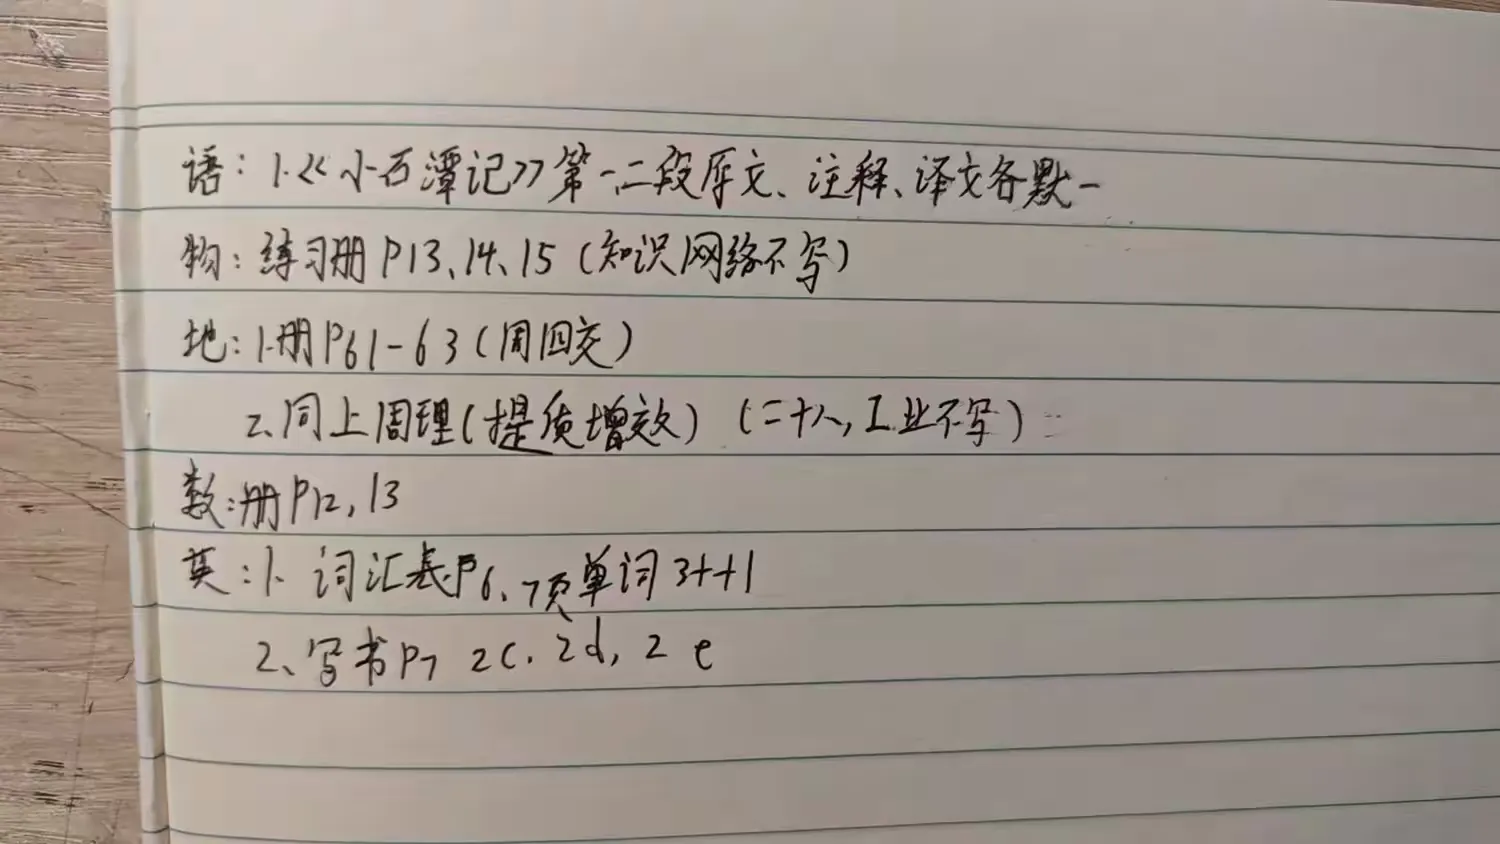 语：1.《小石潭记》第一、二段原文、注释、译文各默一
物：练习册P13、14、15（知识网络不写）
地：1.册P61-63（周四交）
2.同上周理（提质增效）（二十八，工业不写）
数：册P12，13
英：1. 词汇表P6、7页单词3++1
2、写书P7 2c. 2d, 2e